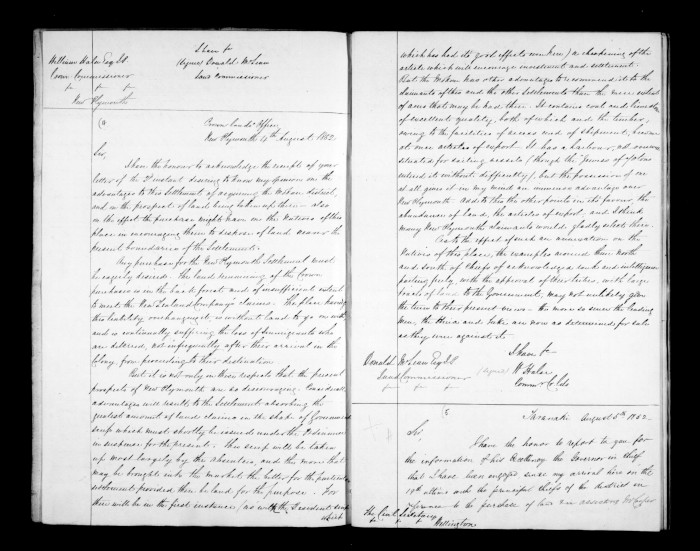 I have &c
(Signed) Donald McLean
Land Commissioner
William Halse Esq. &c
Crown Commissioner
New Plymouth
Crown Lands Office
New Plymouth 4th August 1852
Sir,
I have the honour to acknowledge the receipt of your
letter of the 2nd instant desiring to know my opinion on the
advantages to this Settlement of acquiring the Mokau district,
and on the prospect of land being taken up there - also
on the effect the purchase might have on the Natives of this
place in encouraging them to dispose of land nearer the
present boundaries of the Settlement.
Any purchase for the New Plymouth Settlement must
be eagerly desired. The land remaining of the Crown
purchases is on the back forest and of insufficient extent
to meet the New Zealand Company's claims. The place having
this liability overhanging it is without land to go on with,
and is continually suffering the loss of Immigrants who
are deterred, not infrequently after their arrival in the
Colony, from proceeding to their destination.
But it is not only in these respects that the present
prospects of New Plymouth are so discouraging. Considerable
advantages will result to the Settlements absorbing the
greatest amount of land claims in the shape of Government
scrip which must shortly be issued under the Ordinance
in suspense for the present. This scrip will be taken
up most largely by the absentees and the more that
may be brought into the market the better for the particular
settlement provided there be land for the purpose. For
there will be in the first instance (as with the Resident scrip
which
which has had its good effects even here) a cheapening of the
article which will encourage investment and settlement.
But the Mokau has other advantages to recommend it to the
claimants of this and the other Settlements than the mere extent
of area that may be had there. It contains coal and limestone
of excellent quality, both of which and the timber,
owing to the facilities of access and of shipment, become
at once articles of export. It has a harbour, not
situated for sailing vessels (though the
entered it without difficulty), but the possession of one
at all gives it in my mind an immense advantage over
New Plymouth. Add to this the other points in its favour, the
abundance of land, the articles of export, and I think
many New Plymouth claimants would gladly select there.
As to the effect of such an acquisition on the
Natives of this place, the examples around them north
and south of Chiefs of acknowledged rank and intelligence
parting freely, with the approval of their tribes, with large
tracts of land to the Government, may not unlikely give
the turn to their present views - the more so since the leading
men, the are now as determined for sale
as they were against it.
I have &c
(Signed) W Halse
Commr. C. Lds
Donald McLean Esq. &c
Land Commissioner
Taranaki August 5th 1852
Sir,
I have the honor to report to you for
the information of his Excellency the Governor in Chief
that I have been engaged since my arrival here on the
19th ultimo with the principal chiefs of the district in
reference to the purchase of land
The Civil Secretary
Wellington